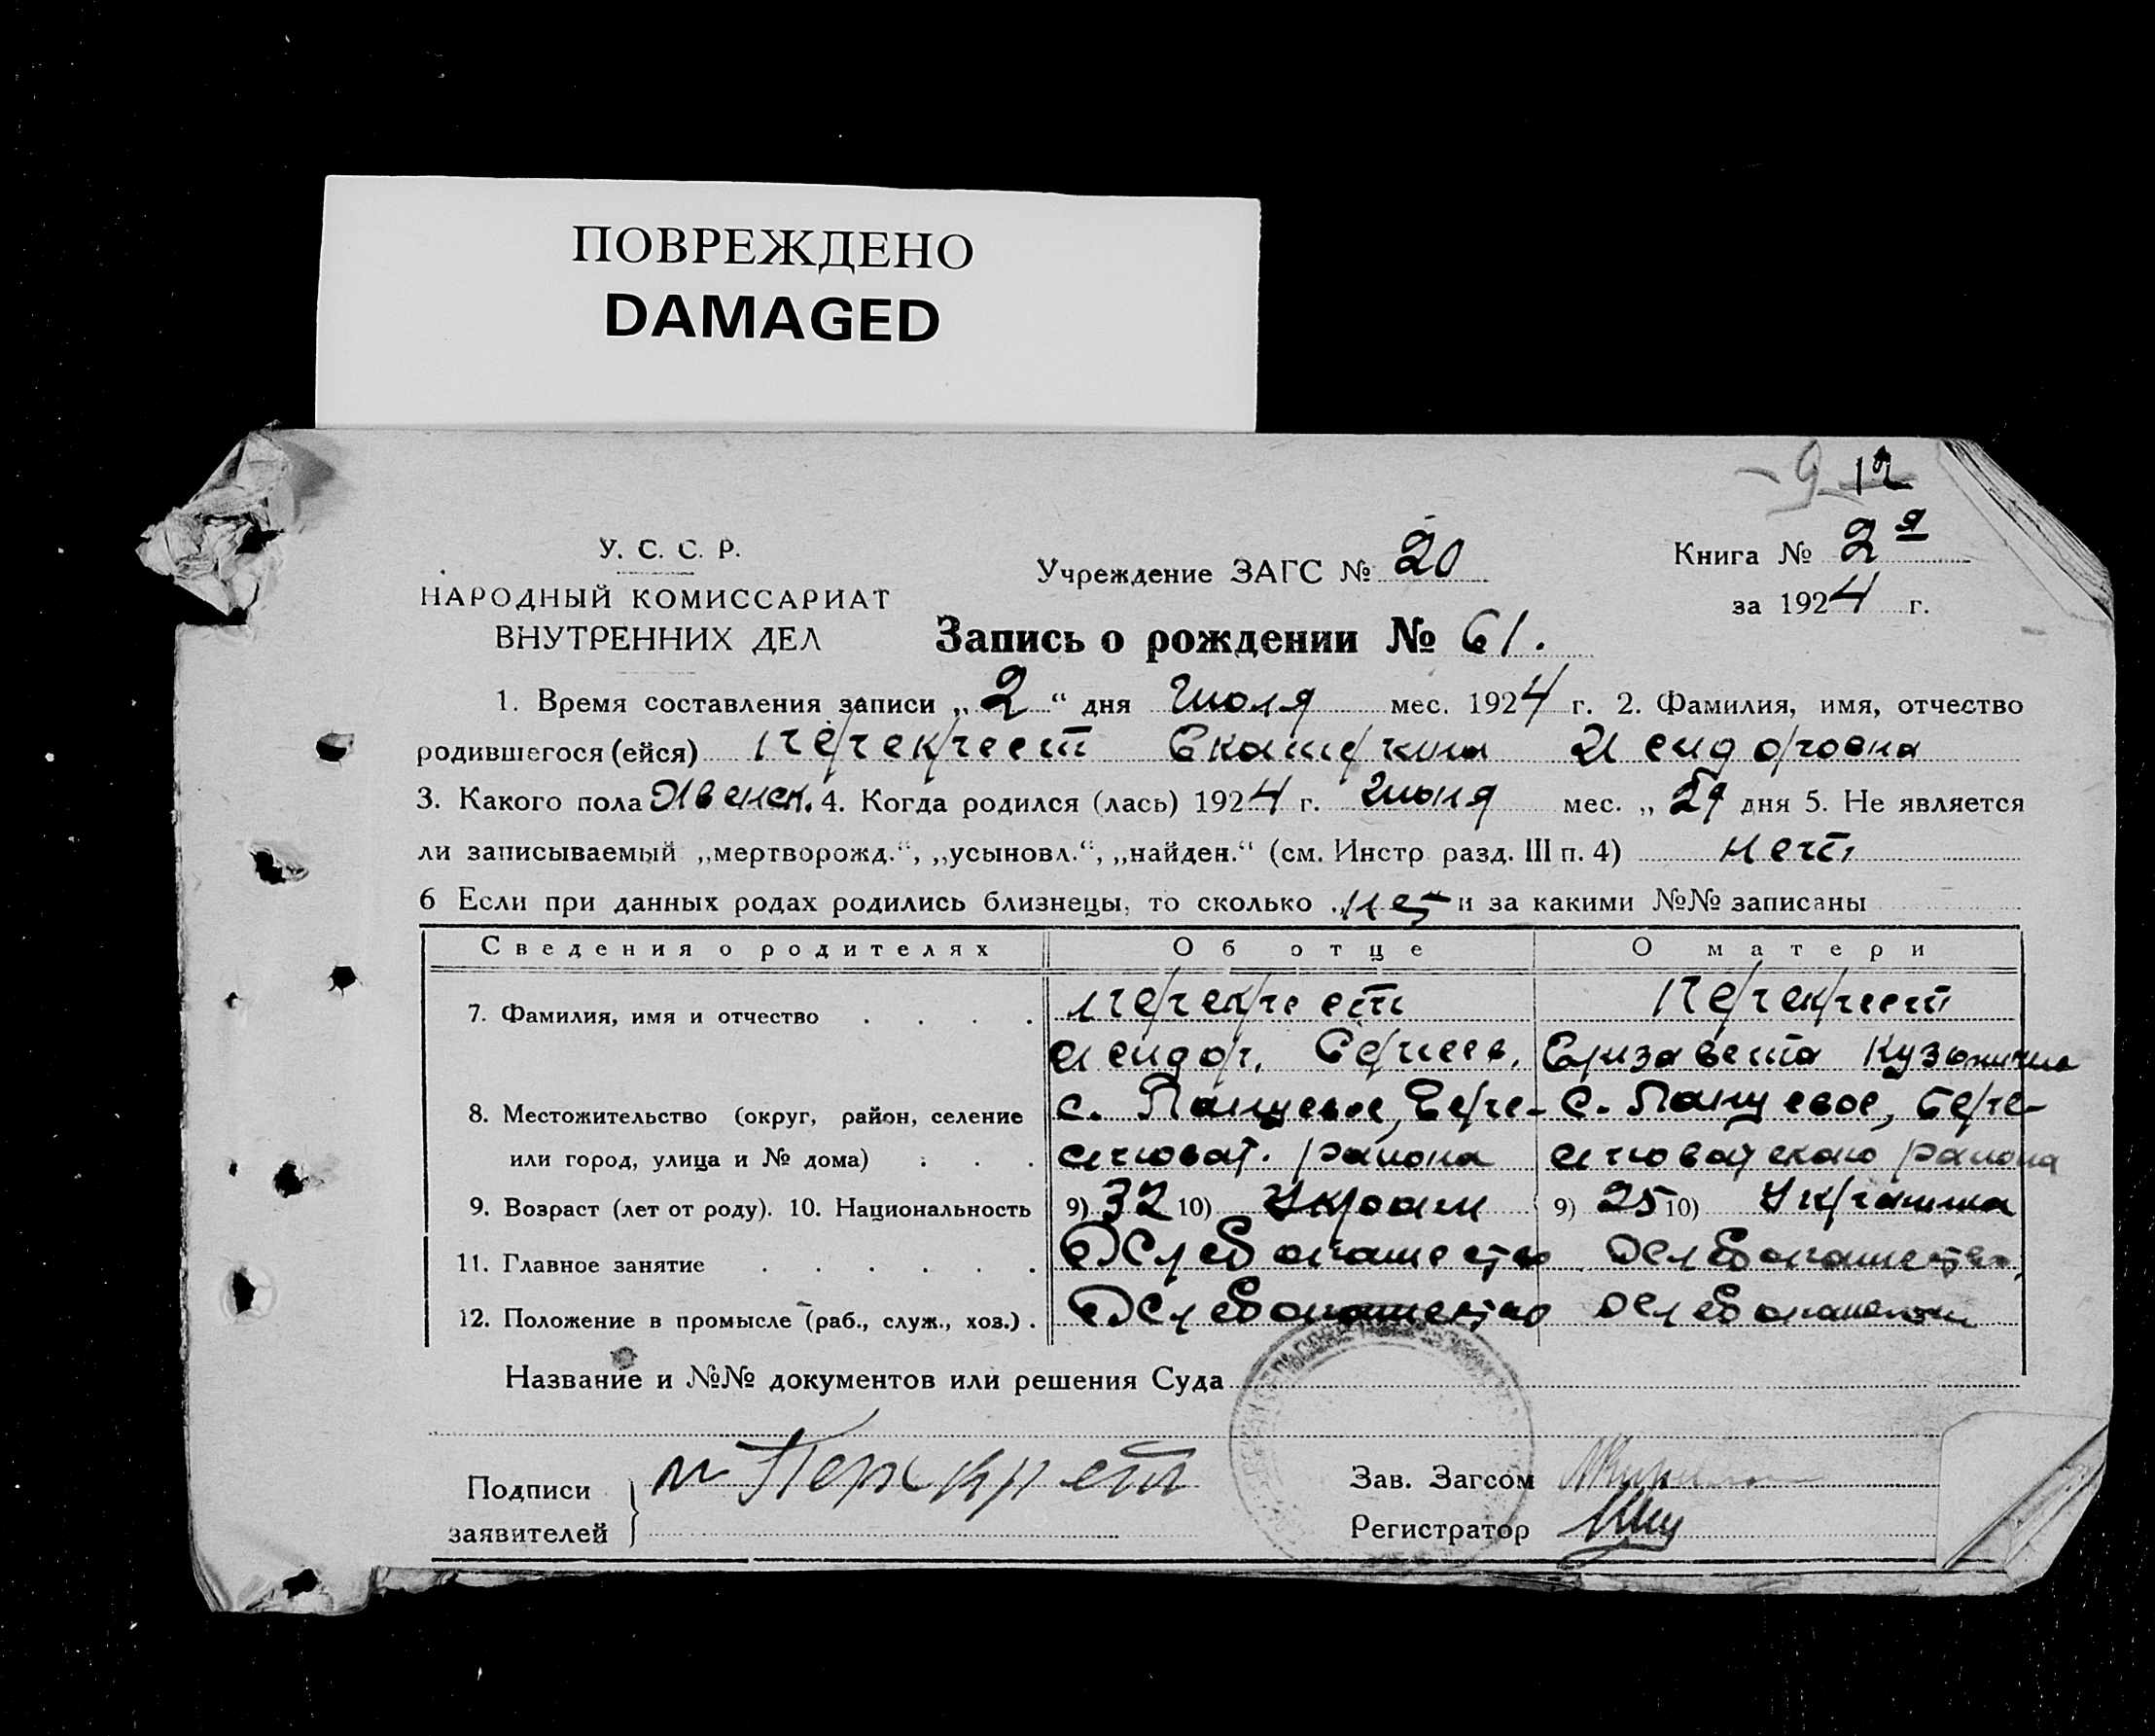 ПОВРЕЖДЕНО
DAMAGED
9 12
У. С. С. Р.
НАРОДНЫЙ КОМИССАРИАТ
ВНУТРЕННИХ ДЕЛ
Учреждение ЗАГС № 20
Книга № 2я
за 1924 г.
Запись о рождении № 61.
1. Время составления записи „2“ дня Июля мес. 1924 г. 2. Фамилия, имя, отчество
родившегося (ейся) Перекрест Екатерина Исидоровна
3. Какого пола Женск. 4. Когда родился (лась) 1924 г. Июня мес. „29 дня 5. Не является
ли записываемый „мертворожд.“, „усыновл.“, „найден.“ (см. Инстр разд. III п. 4) нет
6 Если при данных родах родились близнецы, то сколько нет и за какими №№ записаны
Сведения о родителях Об отце О матери
7. Фамилия, имя и отчество Перекрест Перекрест
Исидор. Сергеев. Елизавета Кузьминична
8. Местожительство (округ, район, селение с. Панцевое, Бере- с. Панцевое, Бере-
или город, улица и № дома) района района
9. Возраст (лет от роду). 10. Национальность 9) 32 10) Украин 9) 25 10) Украинка
11. Главное занятие Хлебопашество Хлебопашество
12. Положение в промысле (раб., служ., хоз.) Хлебопашество Хлебопашество
Название и №№ документов или решения Суда
Подписи
заявителей
Перекрест
Зав. Загсом
Регистратор